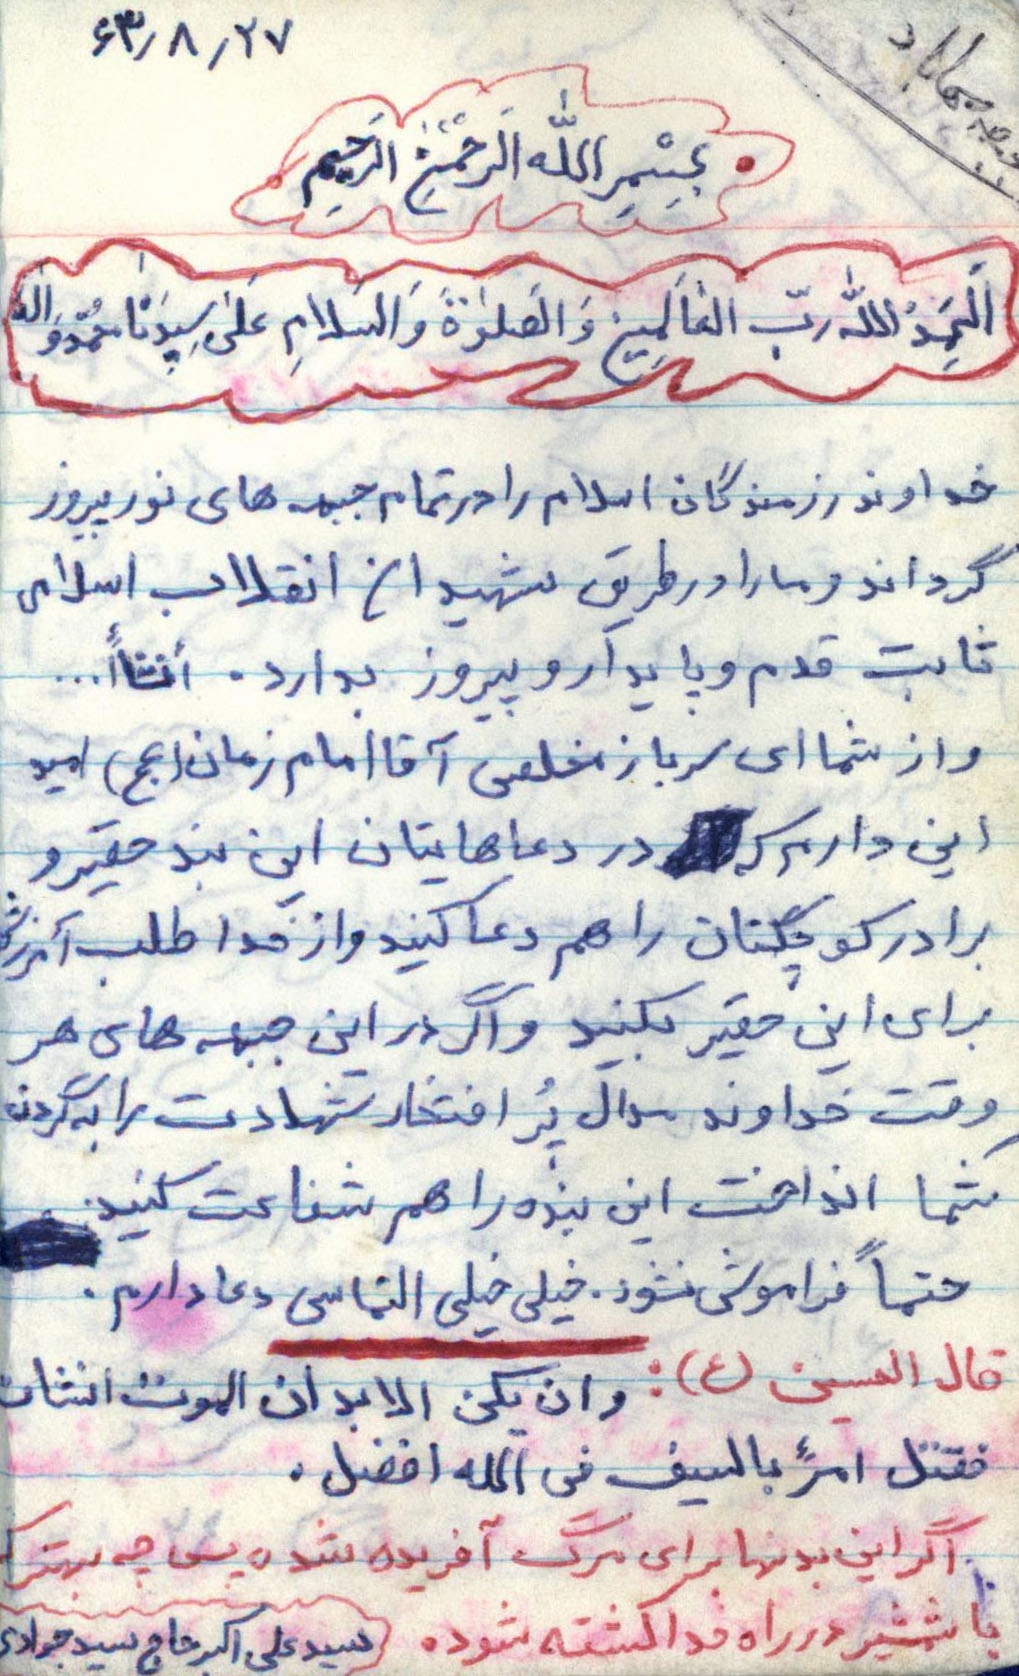 ۶۳٫۸٫۲۷
بِسْمِ اللّٰه الَرحْمٰنِ الَرحیمِ
اَلْحَمِدُ اللّٰه رَبّ العٰالَمِینِ وَ الصَلوٰةَ وَ السَلامِ عَلیٰ سِیِدَنٰا مُحَمّد وَ آله
خداوند رزمندگان اسلام را در تمام جبهه های نور پیروز
گرداند و ما را در طریق شهیدان انقلاب اسلامی
ثابت قدم و پایدار و پیروز بدارد. أنشاأ...
و از شما ای سرباز مخلص آقا امام زمان (عج) امید
این دارم که در دعاهایتان این بند حقیر و
برادر کوچکتان را هم دعا کنید و از خدا طلب آمرزش
برای این حقیر بکنید و اگر در این جبهه های هر
وقت خداوند مدال پُر افتخار شهادت را به گردن
شما انداخت این بنده را هم شفاعت کنید.
حتماً فراموش نشود. خیلی خیلی التماس دعا دارم.
قال الحسین (ع): و ان یکن الابدان الموت انشات
فقتل امرٌ بالسیف فی الله افضل.
اگر این بدنها برای مرگ آفریده شده پس چه بهتر که
با شمشیر در راه خدا کشته شود.
سید علی اکبر حاج سید جوادی